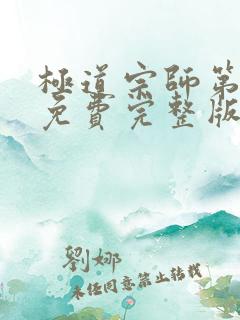 極道宗師第
免費完整版
劉娜
未經同意禁止轉載